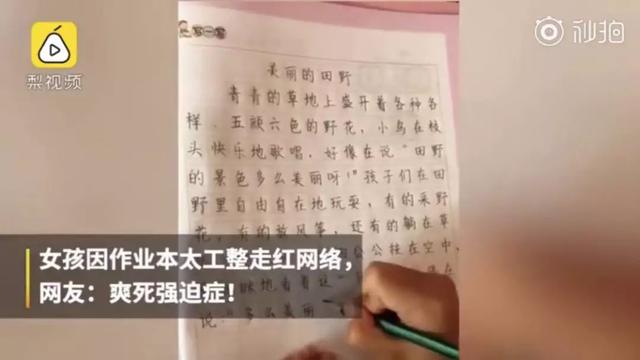 梨视频
秒拍
写一写
美丽的田野
青青的草地上盛开着各种各
样、五颜六色的野花，小鸟在枝
头快乐地歌唱，好像在说“田野
的景色多么美丽呀！”孩子们在田
野里自由自在地玩耍，有的采野
花，有的放风筝，还有的躺在草
公公挂在空中，
女孩因作业本太工整走红网络，
网友：爽死强迫症！
眯地看着这
说：“多么美丽